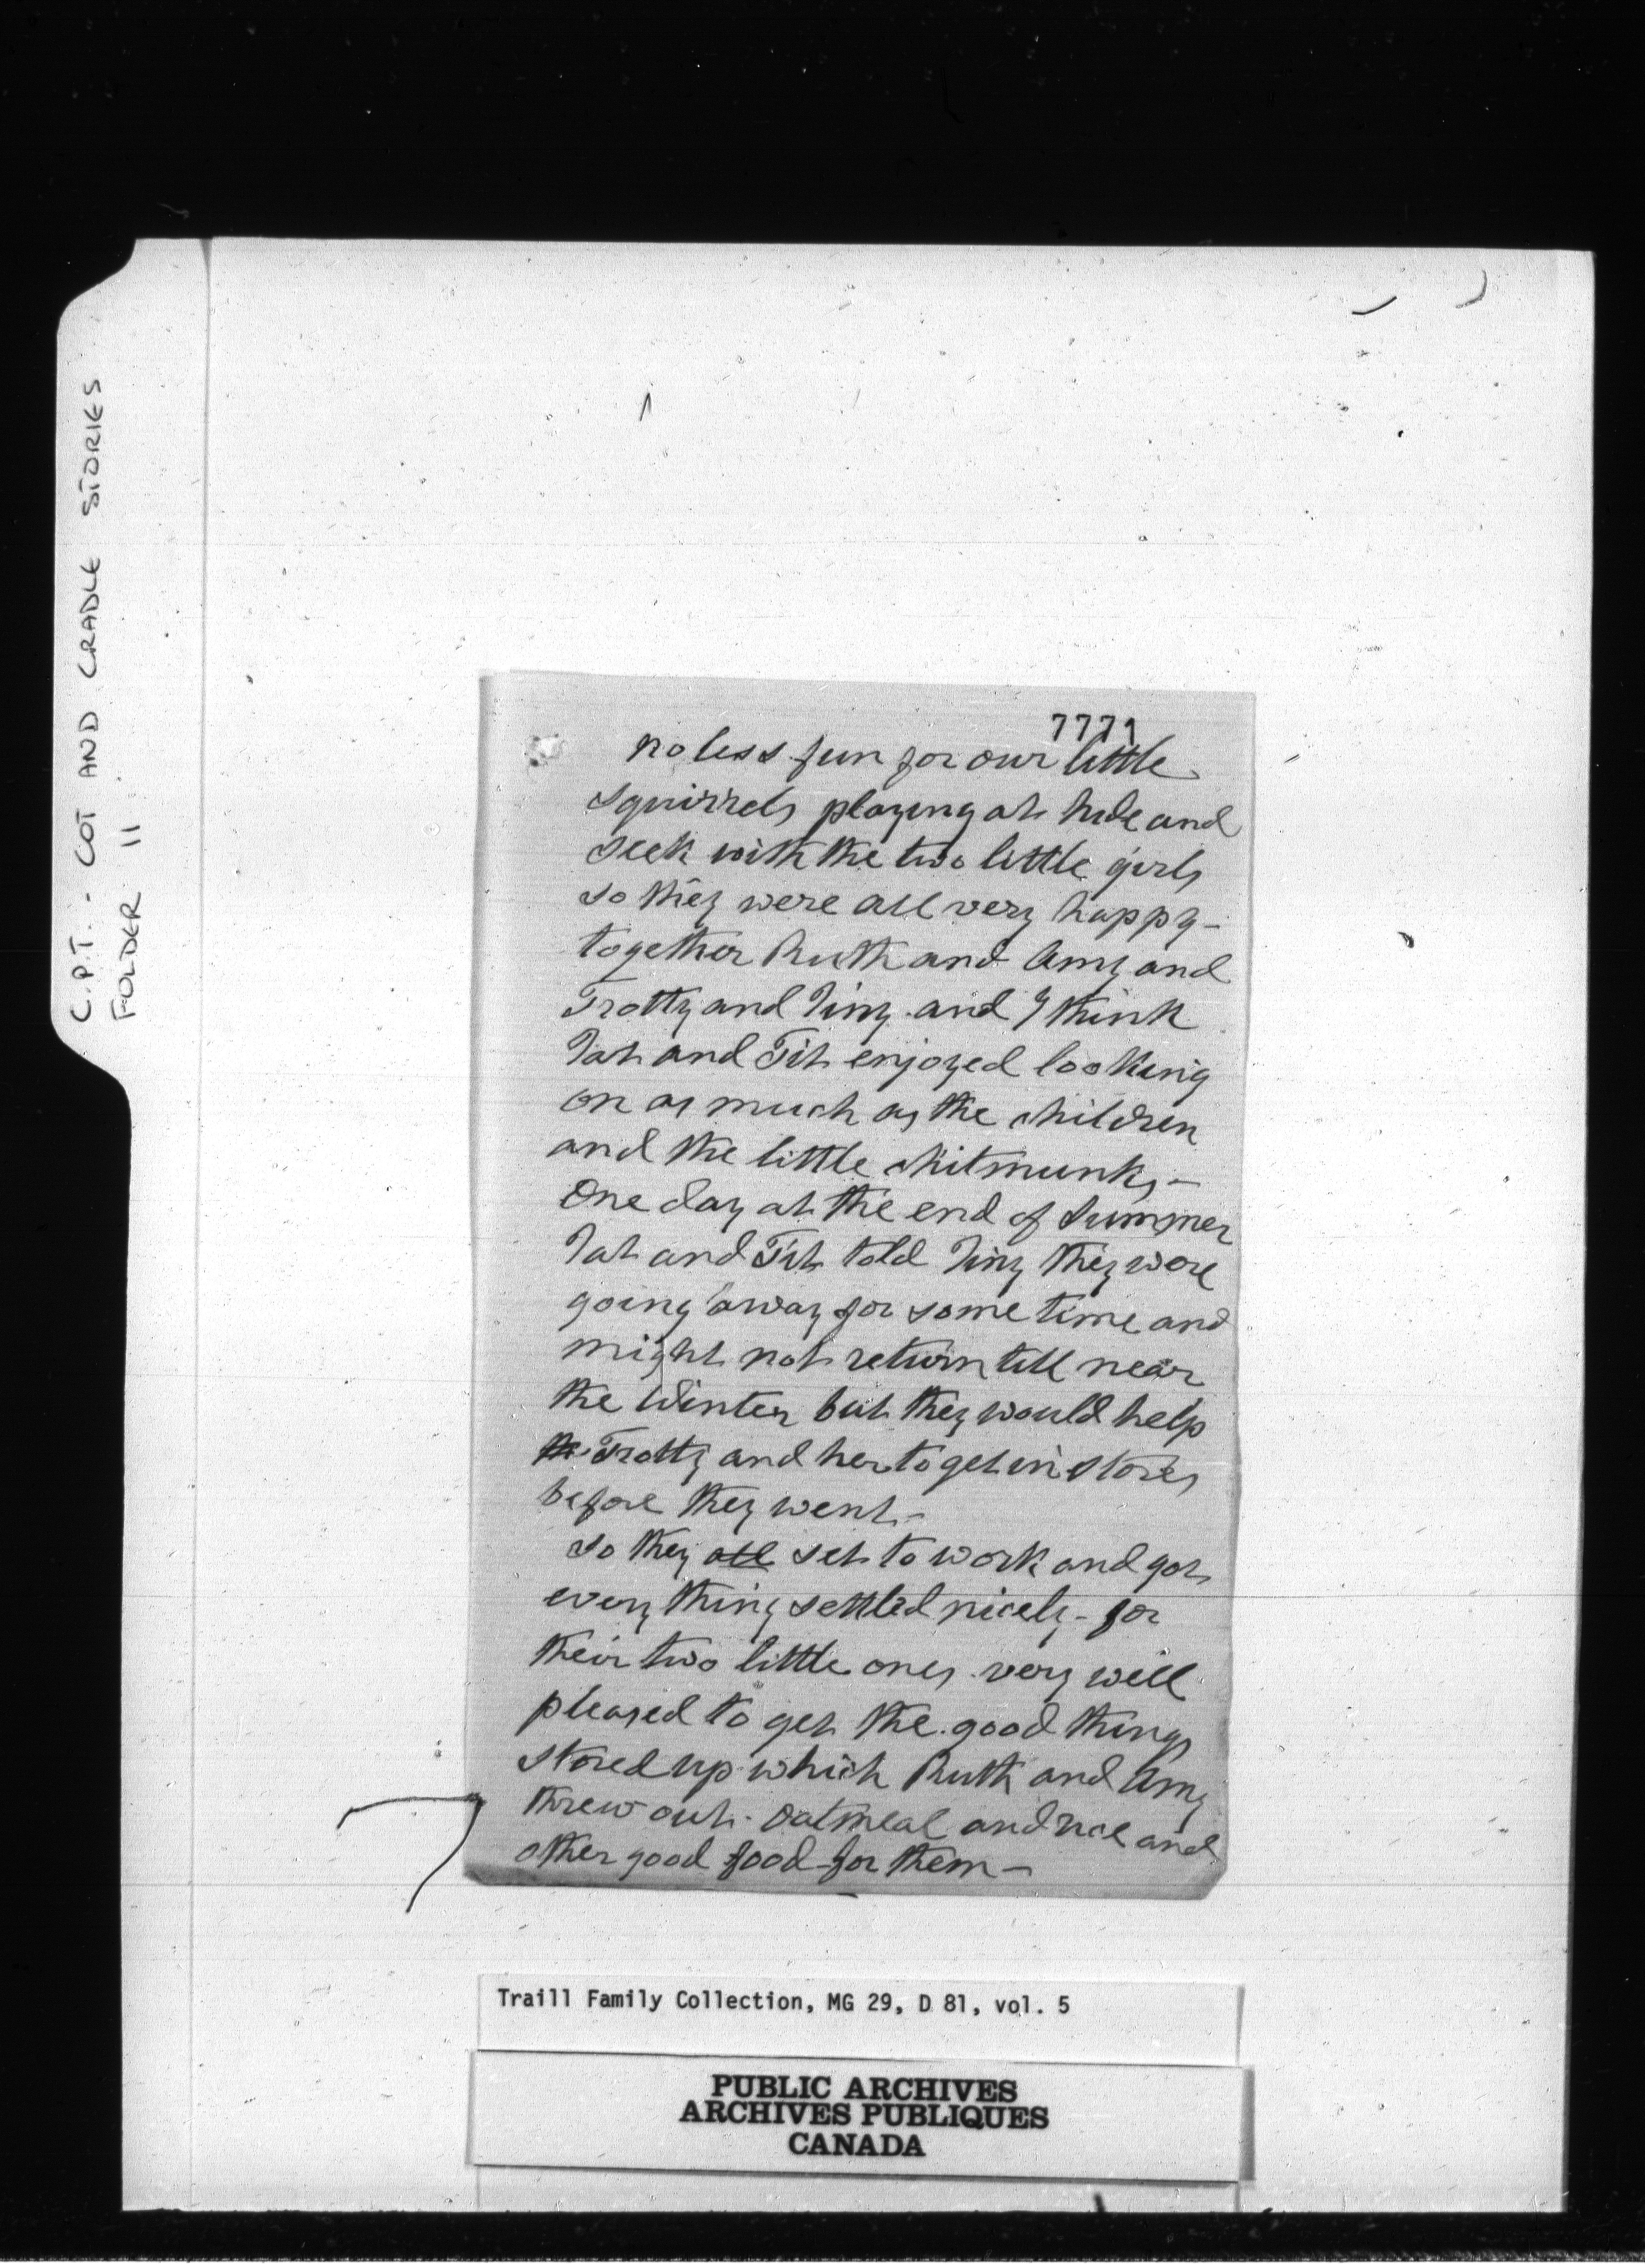 C.P.T. - COT AND CRADLE STORIES
FOLDER 11
7771
no less fun for our little
squirrels playing at hide and
seek with the two little girls
so they were all very happy -
together Ruth and Amy and
Trotty and Tiny and I think
Tat and Tit enjoyed looking
on as much as the children
and the little chitmunks -
One day at the end of Summer
Tat and Tit told Tiny they were
going away for some time and
might not return till near
the Winter but they would help
the Trotty and her to get in stores
before they went -
So they all set to work and got
every thing settled nicely - for
their two little ones very well
pleased to get the good things
stored up which Ruth and Amy
threw out - oatmeal and rice and
other good food for them -
Traill Family Collection, MG 29, D 81, vol. 5
PUBLIC ARCHIVES
ARCHIVES PUBLIQUES
CANADA